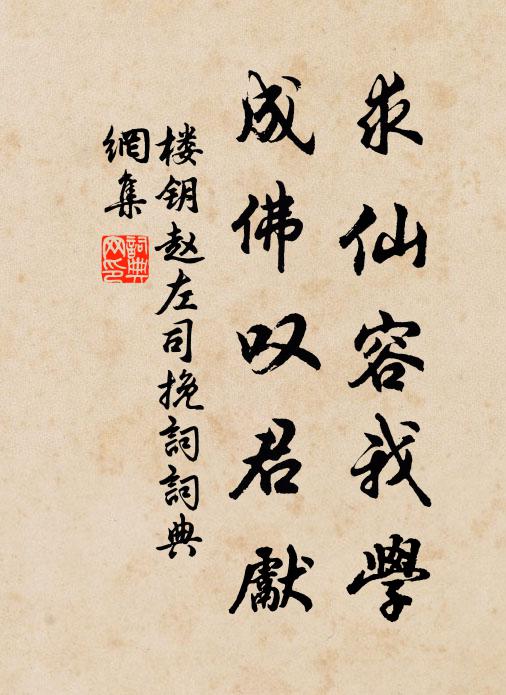 求仙容我學
成佛叹君獻
楼钥赵左司挽詞詞典
網集
詞典
网印